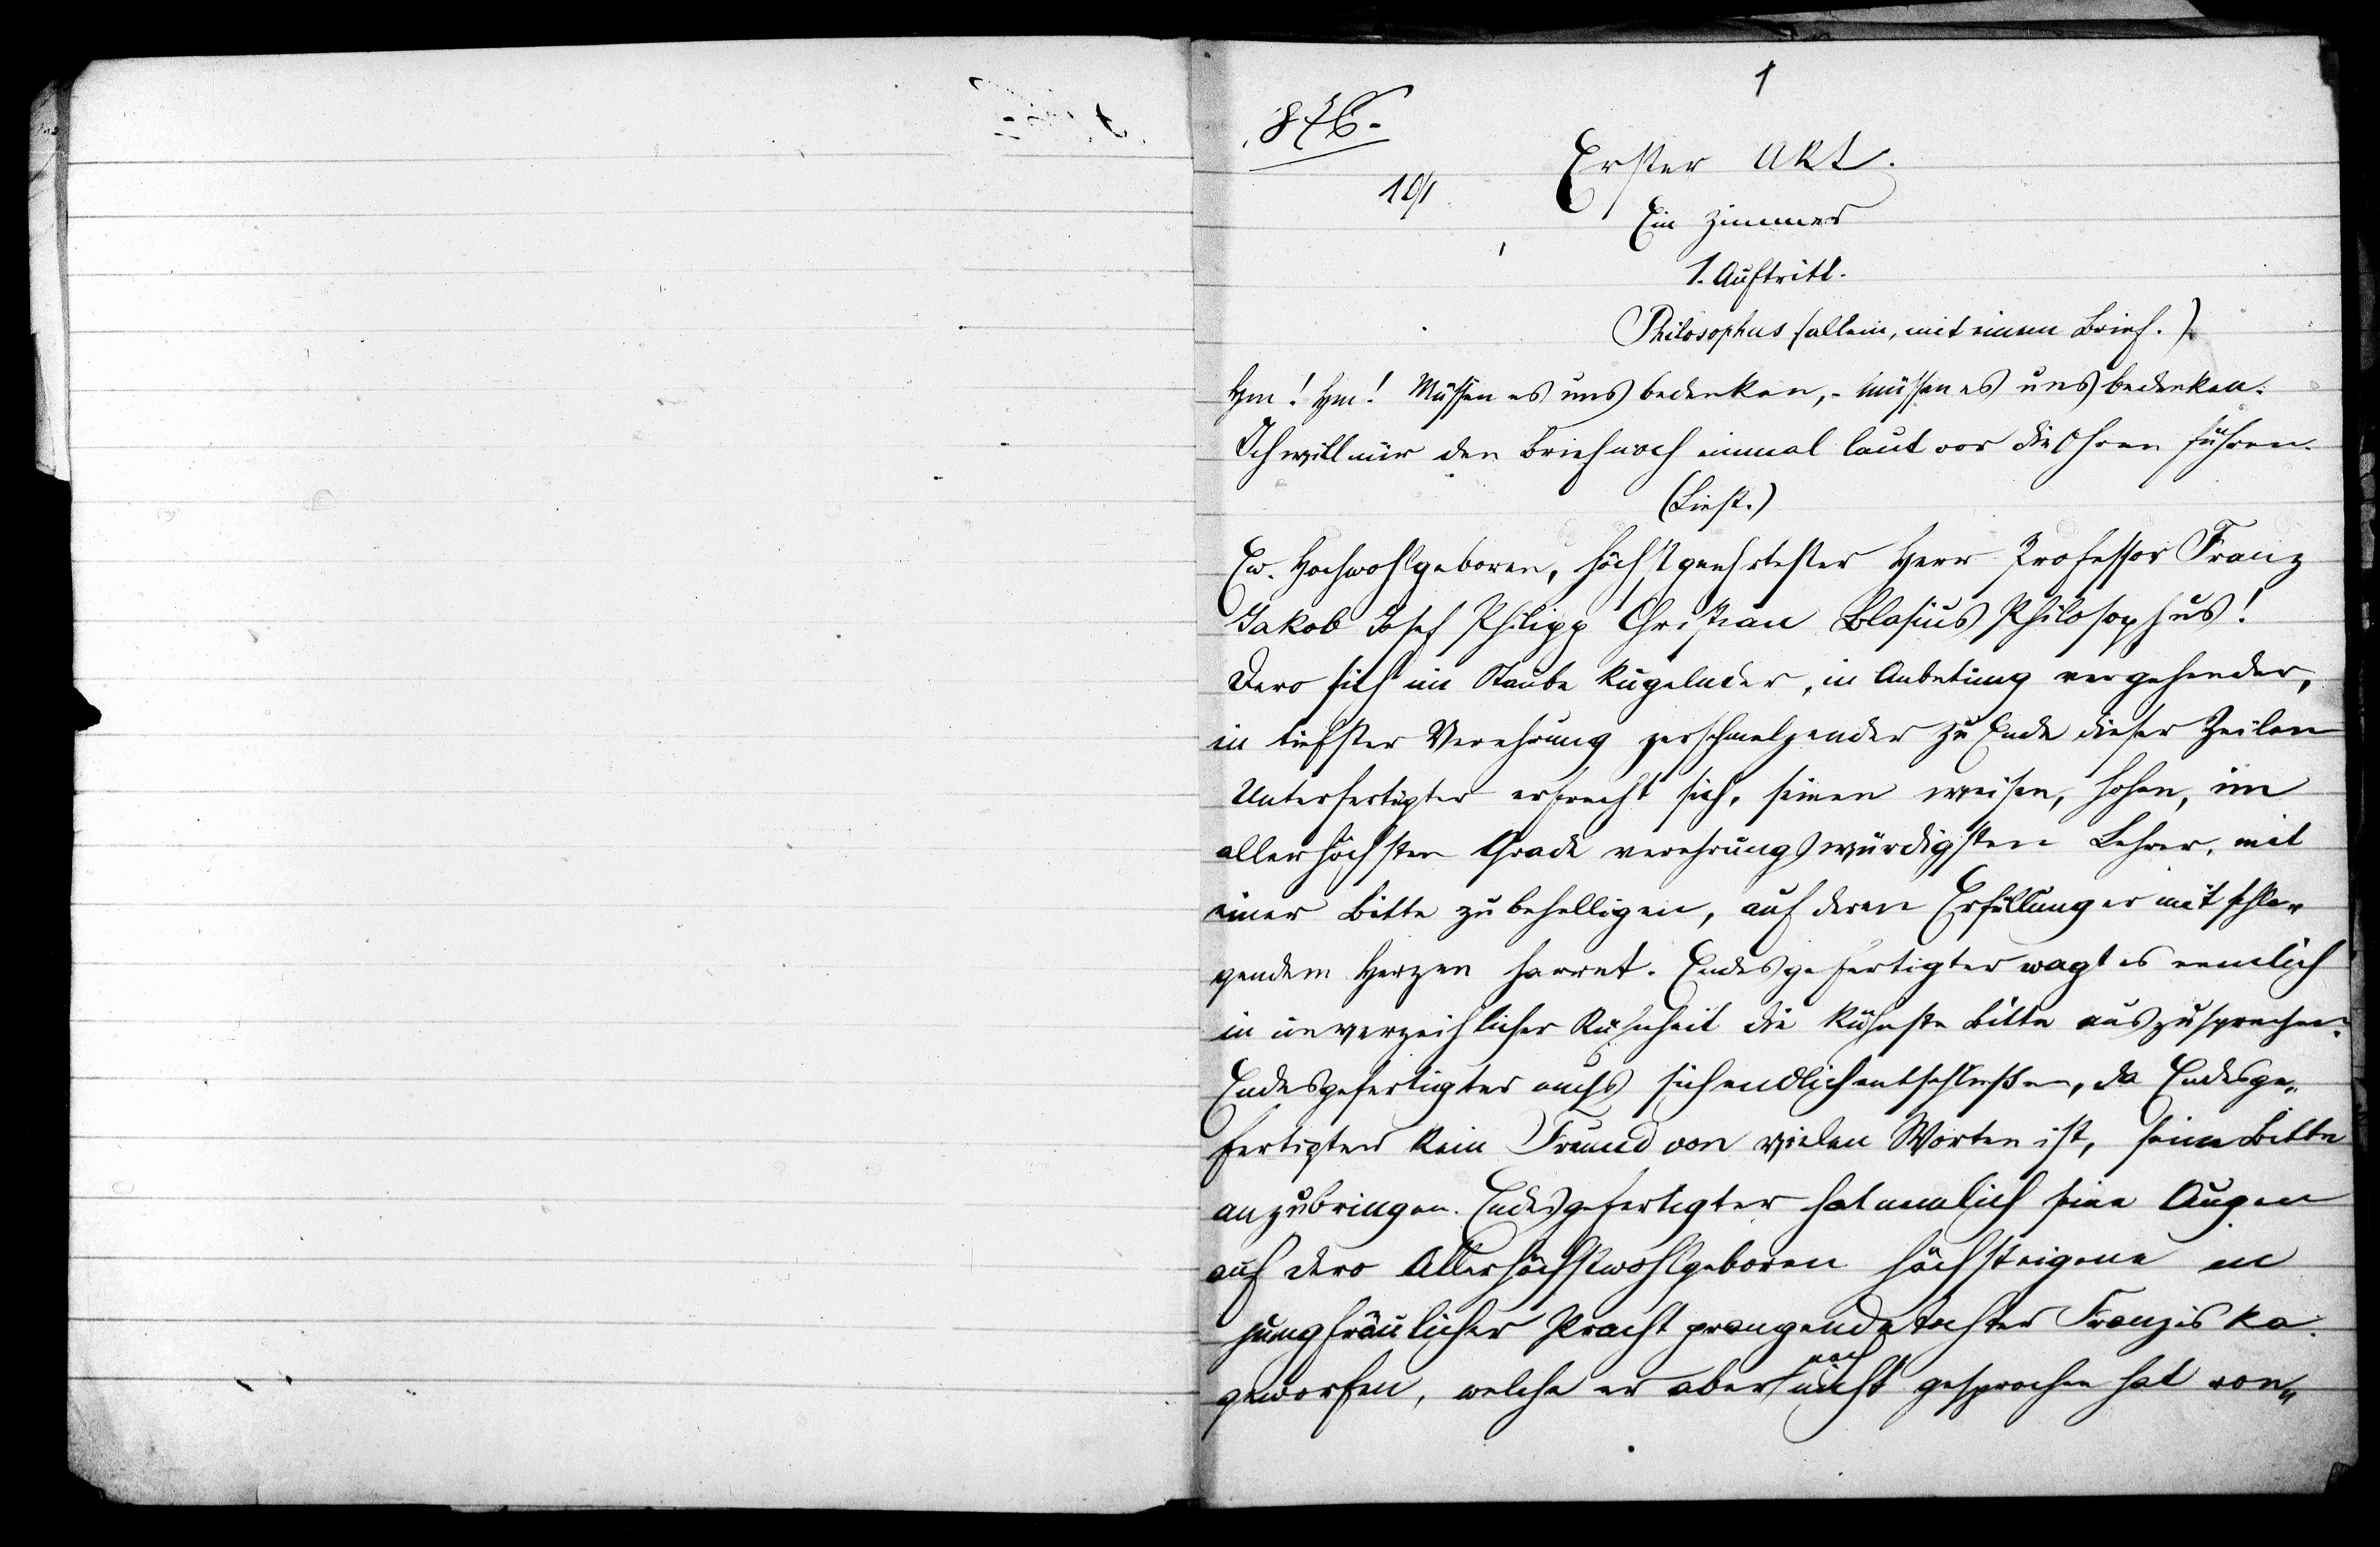 1
876.
Erster Akt.
10/1
Ein Zimmer
1. Auftritt.
Philosophus (allein, mit einem Brief.)
Hm! Hm! Müssen es uns bedenken, - müssen es uns bedenken.
Ich will mir den Brief noch einmal laut vor die Ohren führen.
(Liest.)
Ew. Hochwohlgeboren, höchstgeehrtester Herr Professor Franz
Jakob Josef Philipp Christian Blasius Philosophus!
Dero sich im Staube kugelnder, in Anbetung vergehender,
in tiefster Verehrung zerschmelzender zu Ende dieser Zeilen
Unterfertigter erfrecht sich, seinen weisen, hohen, im
allerhöchsten Grade verehrungswürdigsten Lehrer, mit
einer Bitte zu behelligen, auf deren Erfüllung er mit schla„
gendem Herzen harret. Endesgefertigter wagt es nemlich
in unverzeihlicher Kühnheit die kühnste Bitte auszusprechen.
Endesgefertigter muss sich endlich entschließen, da Endesge„
fertigter kein Freund von vielen Worten ist, seine Bitte
anzubringen. Endesgefertigter hat nemlich seine Augen
auf dero Allerhöchstwohlgeboren höchsteigene in
jungfräulicher Pracht prangende Tochter Franziska
geworfen, welche er aber noch nicht gesprochen hat von„